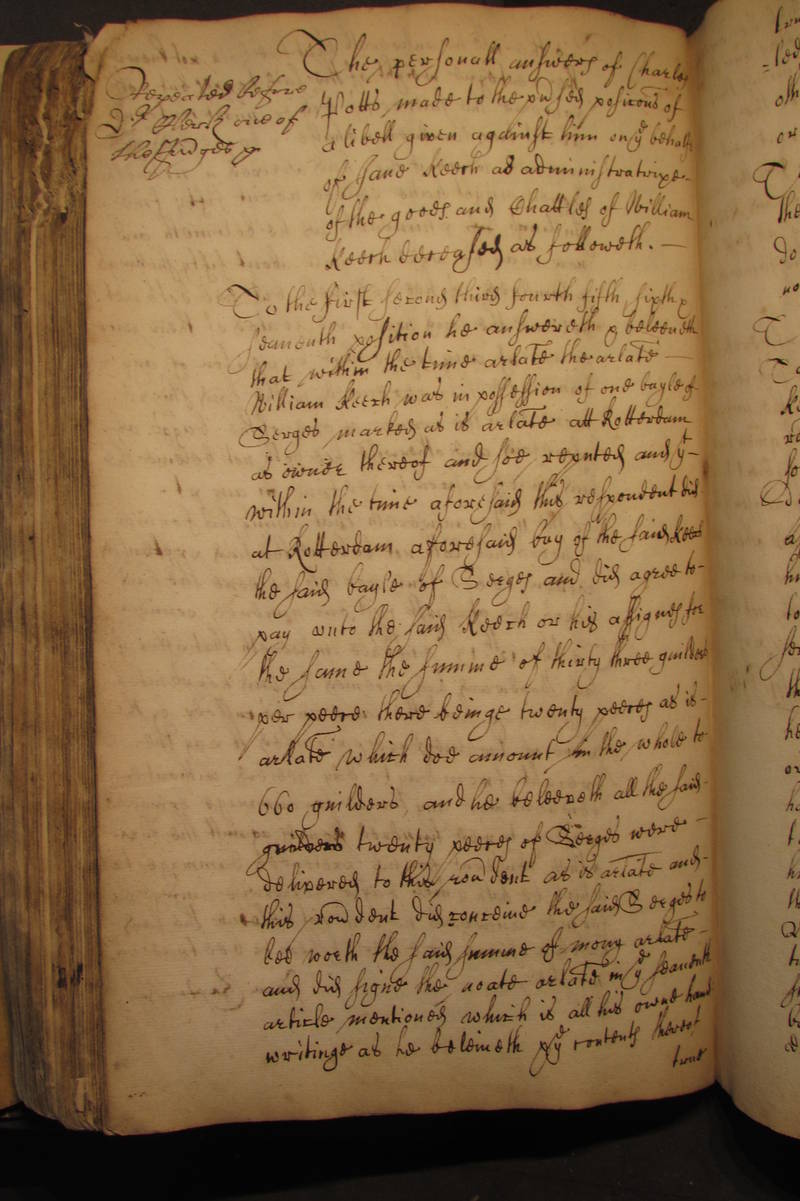 Repeated before
Dr Clerk one of
the Judges
The personall answers of Charles
Potts made to the positions of
a libell given against him on ye behalfe
of Jane Keech as administratrixe
of the goods and Chattles of William
Keech deceased as followeth. —
To the first second third fourth fifth sixth &
seaventh position he answereth & beleeveth
that within the time arlate the arlate —
William Keech was in possession of one bayle of
Serges marked as is arlate att Rotterdam
as owner thereof and soe reputed and yt
within the time aforesaid this respondent did
at Rotterdam aforesaid buy of the said Keech
the said bayle of Serges and did agree to
pay unto the said Keech or his assignes for
the same the summe of thirty three guilders
per peece there beinge twenty peeces as is
arlate which doe amount in the whole to
660 guilders and he beleeveth all the said
guilders twenty peeces of Serges were —
delivered to this rondent as is arlate and
this rondent did conceive the said Serges to
bee worth the said summe of mony arlate —
and did signe the noate arlate in ye seaventh
article mentioned which is all his owne hand
writinge as he beleiveth & ye contents thereof
true